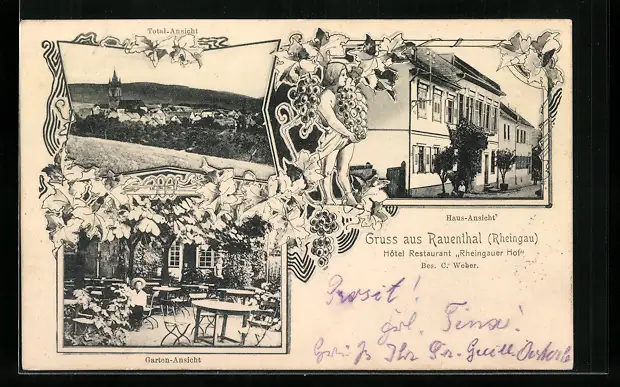 Total-Ansicht
Haus-Ansicht
Gruss aus Rauenthal (Rheingau)
Hôtel Restaurant „Rheingauer Hof“
Bes. C. Weber.
Prosit!
Tina!
Garten-Ansicht